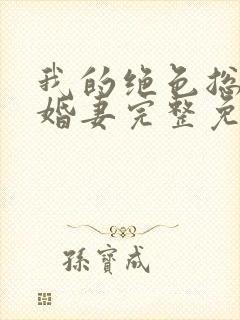 我的绝色总
婚妻完整免
孫寳成